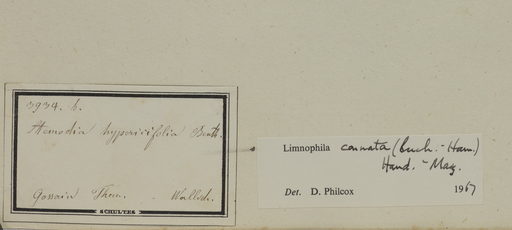 3934. b.
Stemodia hypericifolia Benth.
Gossain Than. Wallich.
SCHULTES
Limnophila connata (Buch.-Ham.)
Hand.-Maz.
Det. D. Philcox 1967